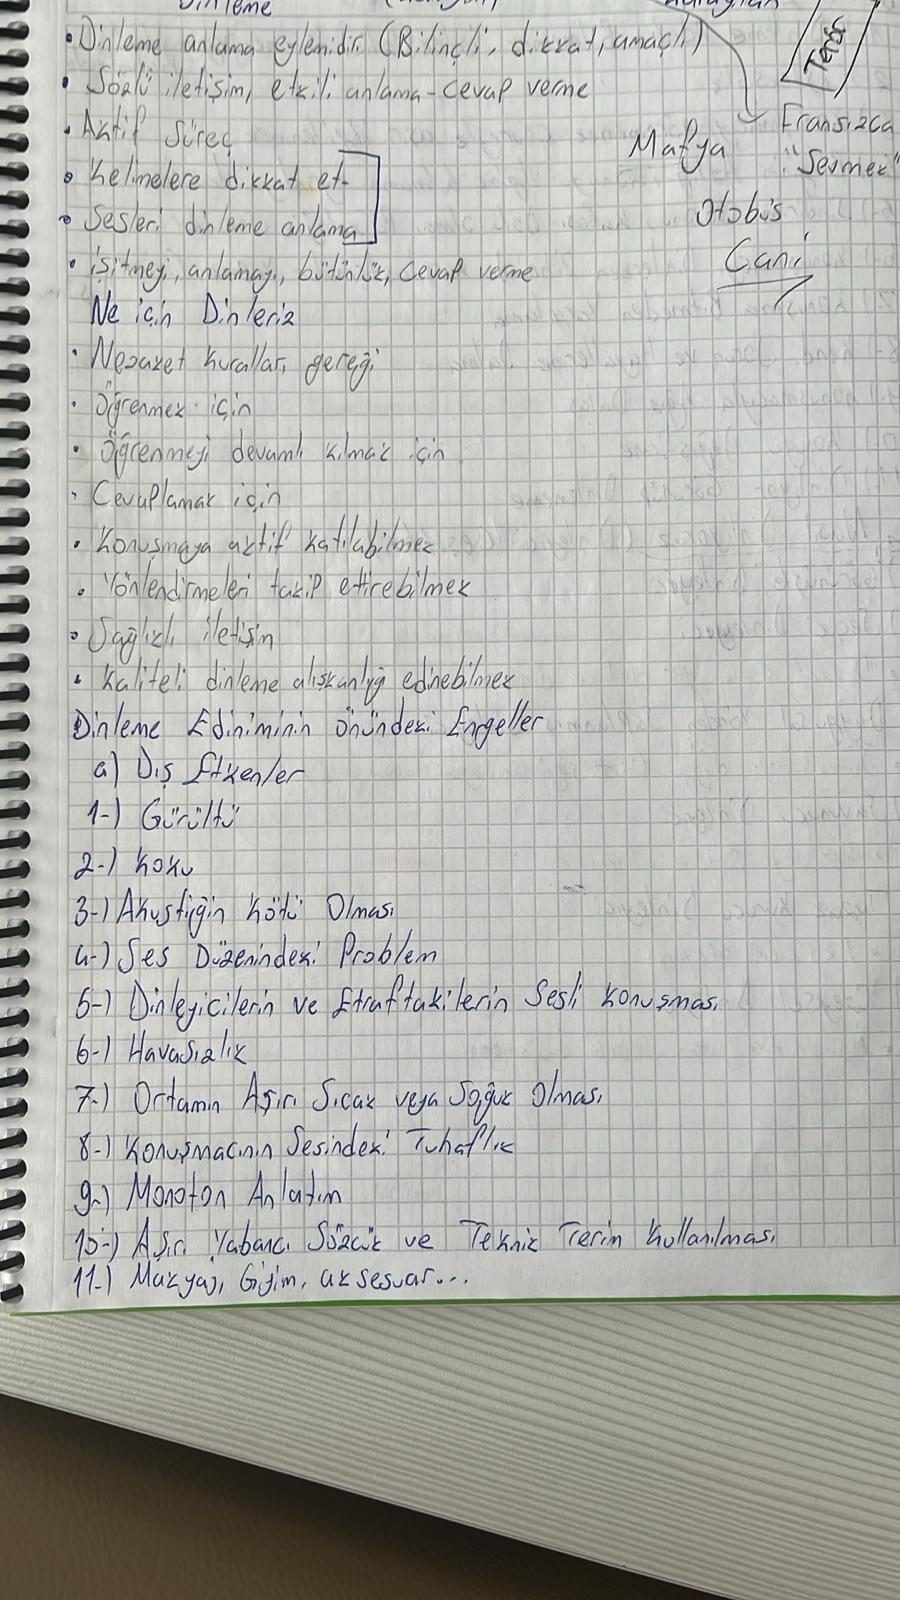 Dinleme
• Dinleme anlama eylemidir (Bilinçli, dikkat, amaçlı)
• Sözlü iletişim, etkili anlama - cevap verme
• Aktif süreç
• Kelimelere dikkat et.
• Sesleri dinleme anlama
• işitmeyi, anlamayı, bütünlük, cevap verme
Ne için Dinleriz
• Nezaket kuralları gereği
• Öğrenmek için
• Öğrenmeyi devamlı kılmak için
• Cevaplamak için
• Konuşmaya aktif katılabilmek
• Yönlendirmeleri takip ettirebilmek
• Sağlıklı iletişim
• Kaliteli dinleme alışkanlığı edinebilmek
Dinleme Ediniminin önündeki Engeller
a) Dış Etkenler
1-) Gürültü
2-) Koku
3-) Akustiğin Kötü Olması
4-) Ses Düzenindeki Problem
5-) Dinleyicilerin ve Etraftakilerin Sesli Konuşması
6-) Havasızlık
7-) Ortamın Aşırı Sıcak veya Soğuk Olması
8-) Konuşmacının Sesindeki Tuhaflık
9-) Monoton Anlatım
10-) Aşırı Yabancı Sözcük ve Teknik Terim Kullanılması
11-) Makyaj, Giyim, aksesuar...
Terör
Mafya
Fransızca
"Sevmek"
Otobüs
Cani